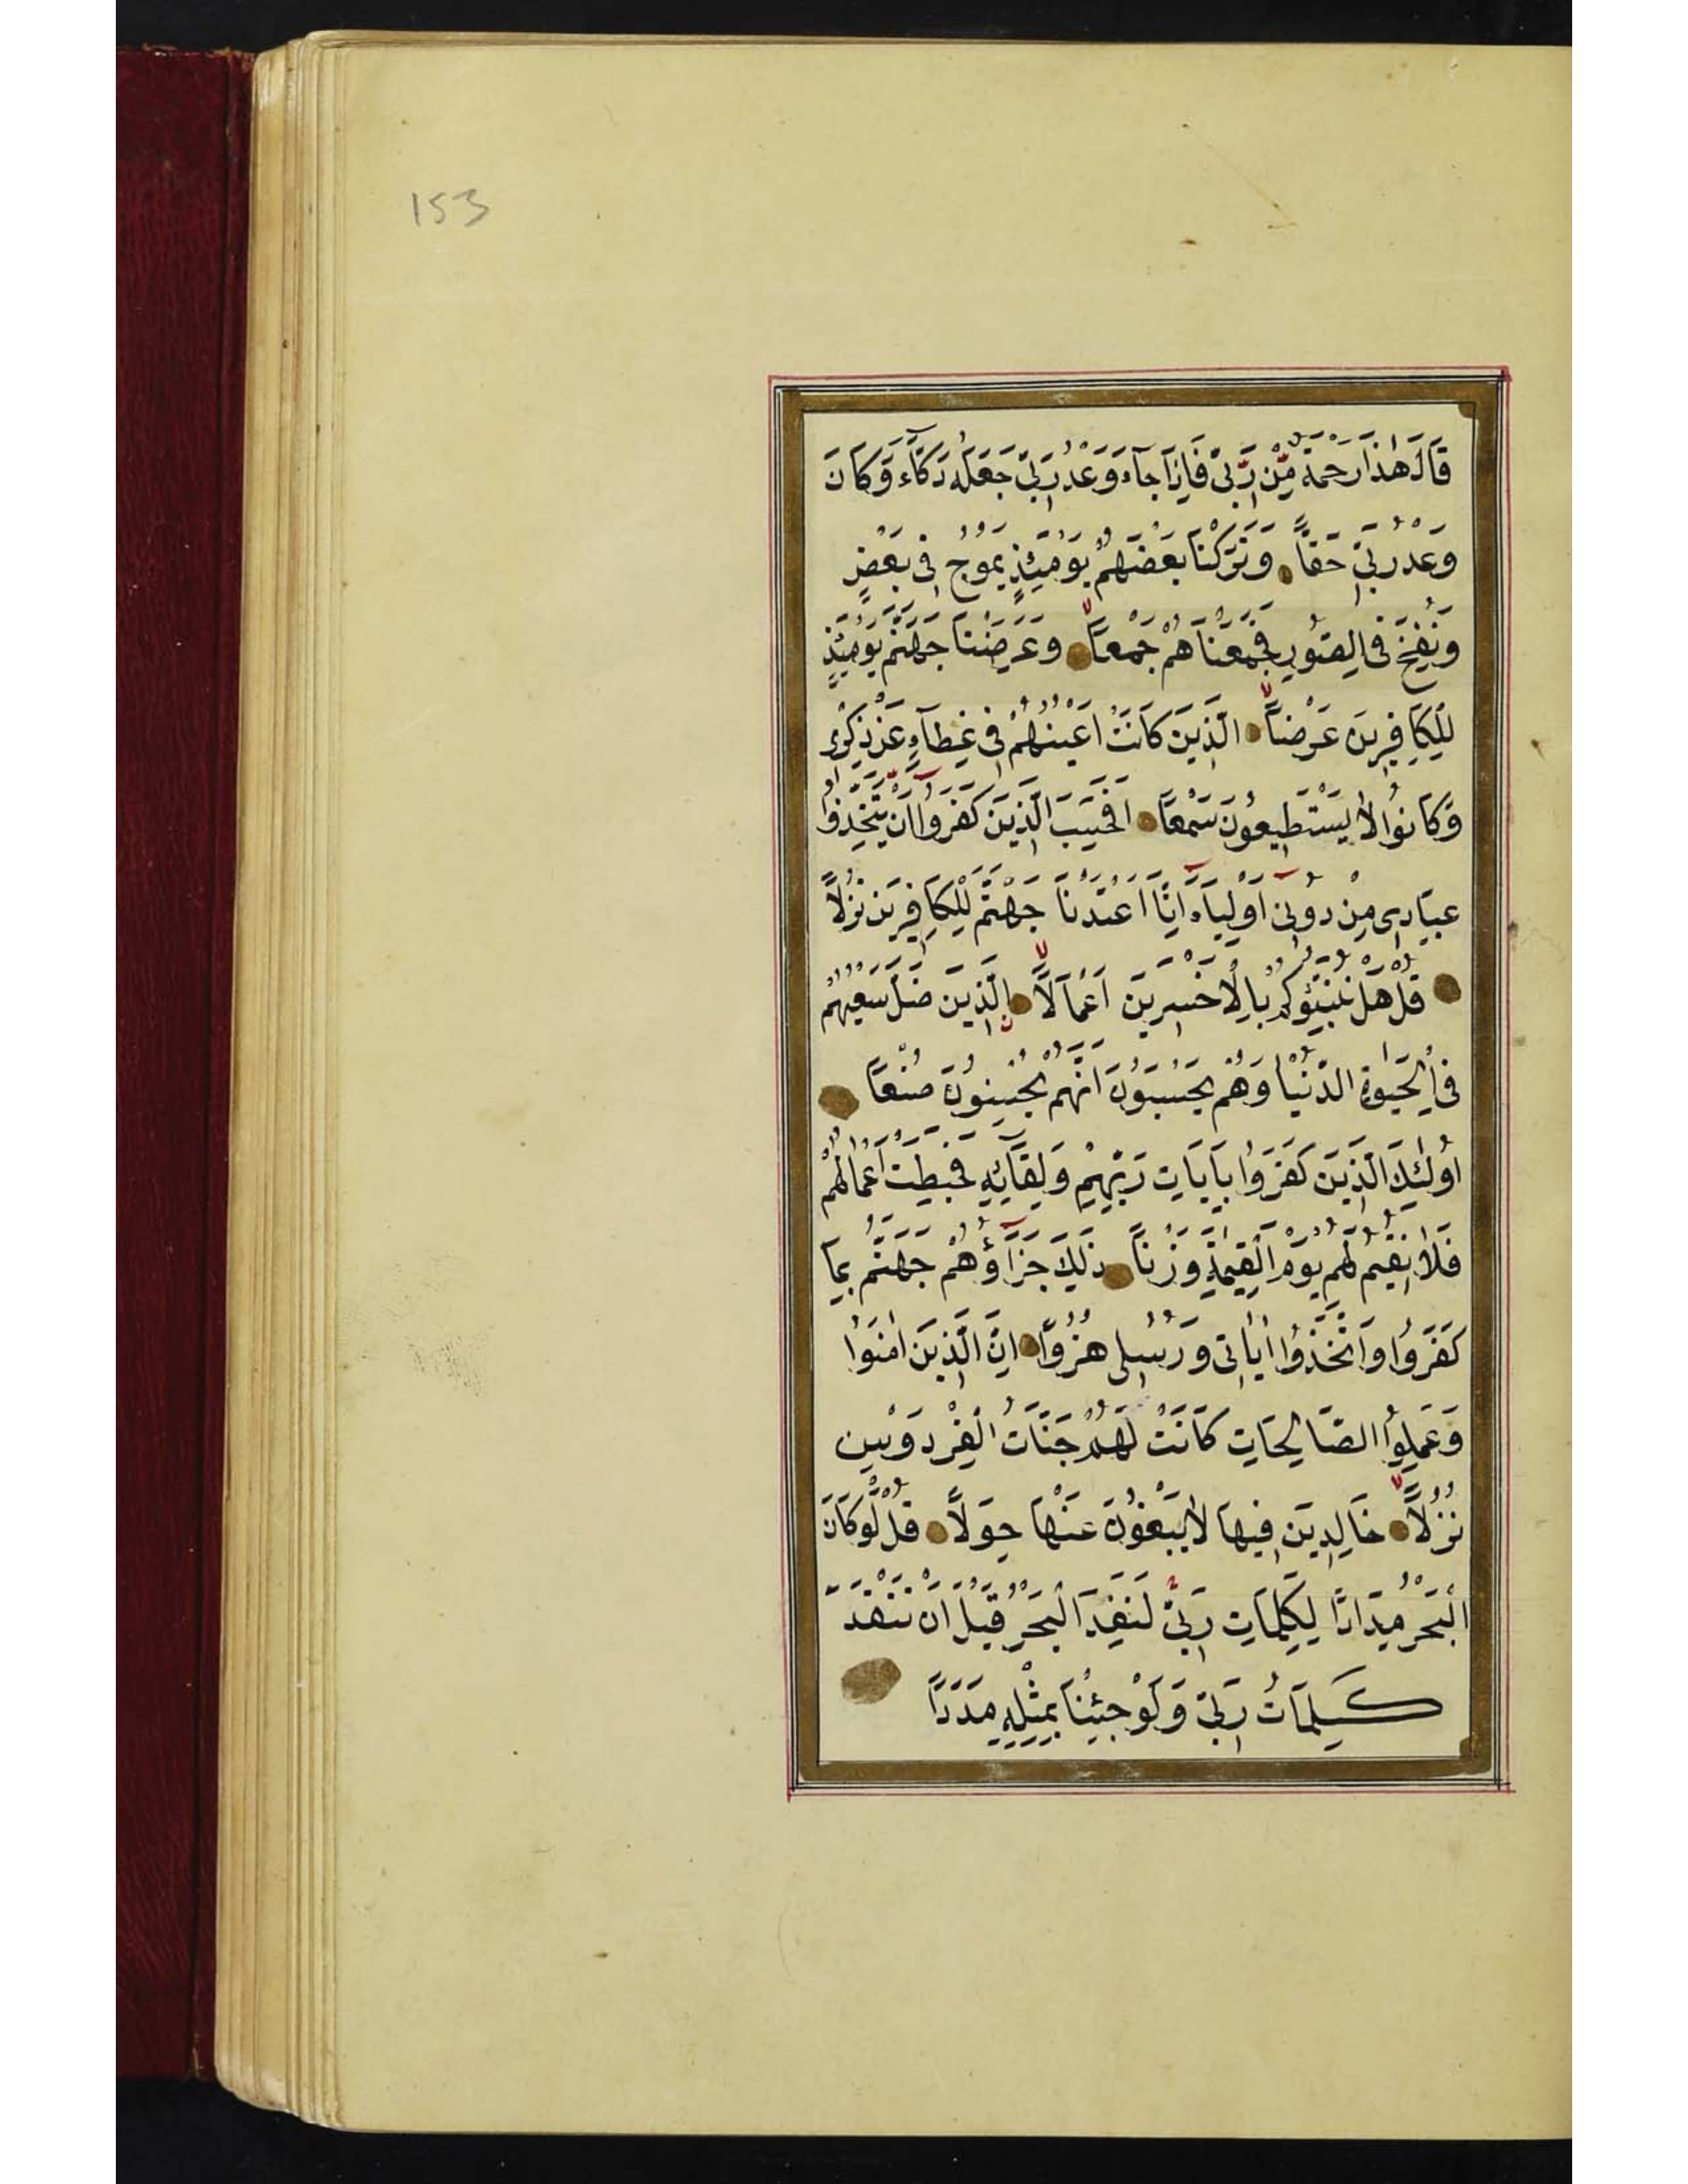 153
قَالَ هٰذَا رَحْمَةٌ مِّنْ رَّبّٖى فَاِذَا جَآءَ وَعْدُ رَبّٖى جَعَلَهُ دَكَّآءَ وَكَانَ
وَعْدُ رَبّٖى حَقًّا وَتَرَكْنَا بَعْضَهُمْ يَوْمَئِذٍ يَمُوجُ فٖى بَعْضٍ
وَنُفِخَ فِى الصُّورِ فَجَمَعْنَاهُمْ جَمْعًا وَعَرَضْنَا جَهَنَّمَ يَوْمَئِذٍ
لِلْكَافِرٖينَ عَرْضًا الَّذٖينَ كَانَتْ اَعْيُنُهُمْ فٖى غِطَآءٍ عَنْ ذِكْرٖى
وَكَانُوا لَا يَسْتَطٖيعُونَ سَمْعًا اَفَحَسِبَ الَّذٖينَ كَفَرُوا اَنْ يَتَّخِذُوا
عِبَادٖى مِنْ دُونٖى اَوْلِيَآءَ اِنَّا اَعْتَدْنَا جَهَنَّمَ لِلْكَافِرٖينَ نُزُلًا
قُلْ هَلْ نُنَبِّئُكُمْ بِالْاَخْسَرٖينَ اَعْمَالًا الَّذٖينَ ضَلَّ سَعْيُهُمْ
فِى الْحَيٰوةِ الدُّنْيَا وَهُمْ يَحْسَبُونَ اَنَّهُمْ يُحْسِنُونَ صُنْعًا
اُولٰئِكَ الَّذٖينَ كَفَرُوا بِاٰيَاتِ رَبِّهِمْ وَلِقَآئِهٖ فَحَبِطَتْ اَعْمَالُهُمْ
فَلَا نُقٖيمُ لَهُمْ يَوْمَ الْقِيٰمَةِ وَزْنًا ذٰلِكَ جَزَآؤُهُمْ جَهَنَّمُ بِمَا
كَفَرُوا وَاتَّخَذُوا اٰيَاتٖى وَرُسُلٖى هُزُوًا اِنَّ الَّذٖينَ اٰمَنُوا
وَعَمِلُوا الصَّالِحَاتِ كَانَتْ لَهُمْ جَنَّاتُ الْفِرْدَوْسِ
نُزُلًا خَالِدٖينَ فٖيهَا لَا يَبْغُونَ عَنْهَا حِوَلًا قُلْ لَّوْ كَانَ
الْبَحْرُ مِدَادًا لِكَلِمَاتِ رَبّٖى لَنَفِدَ الْبَحْرُ قَبْلَ اَنْ تَنْفَدَ
كَلِمَاتُ رَبّٖى وَلَوْ جِئْنَا بِمِثْلِهٖ مَدَدًا